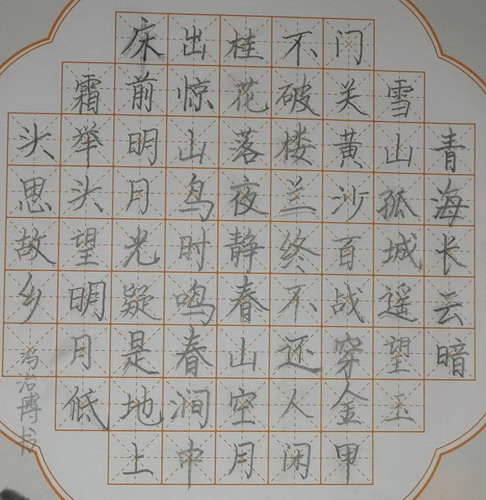 青海长云暗
雪山孤城遥望玉
门关黄沙百战穿金甲
不破楼兰终不还人闲
桂花落夜静春山空月
出惊山鸟时鸣春涧中
床前明月光疑是地上
霜举头望明月低
头思故乡